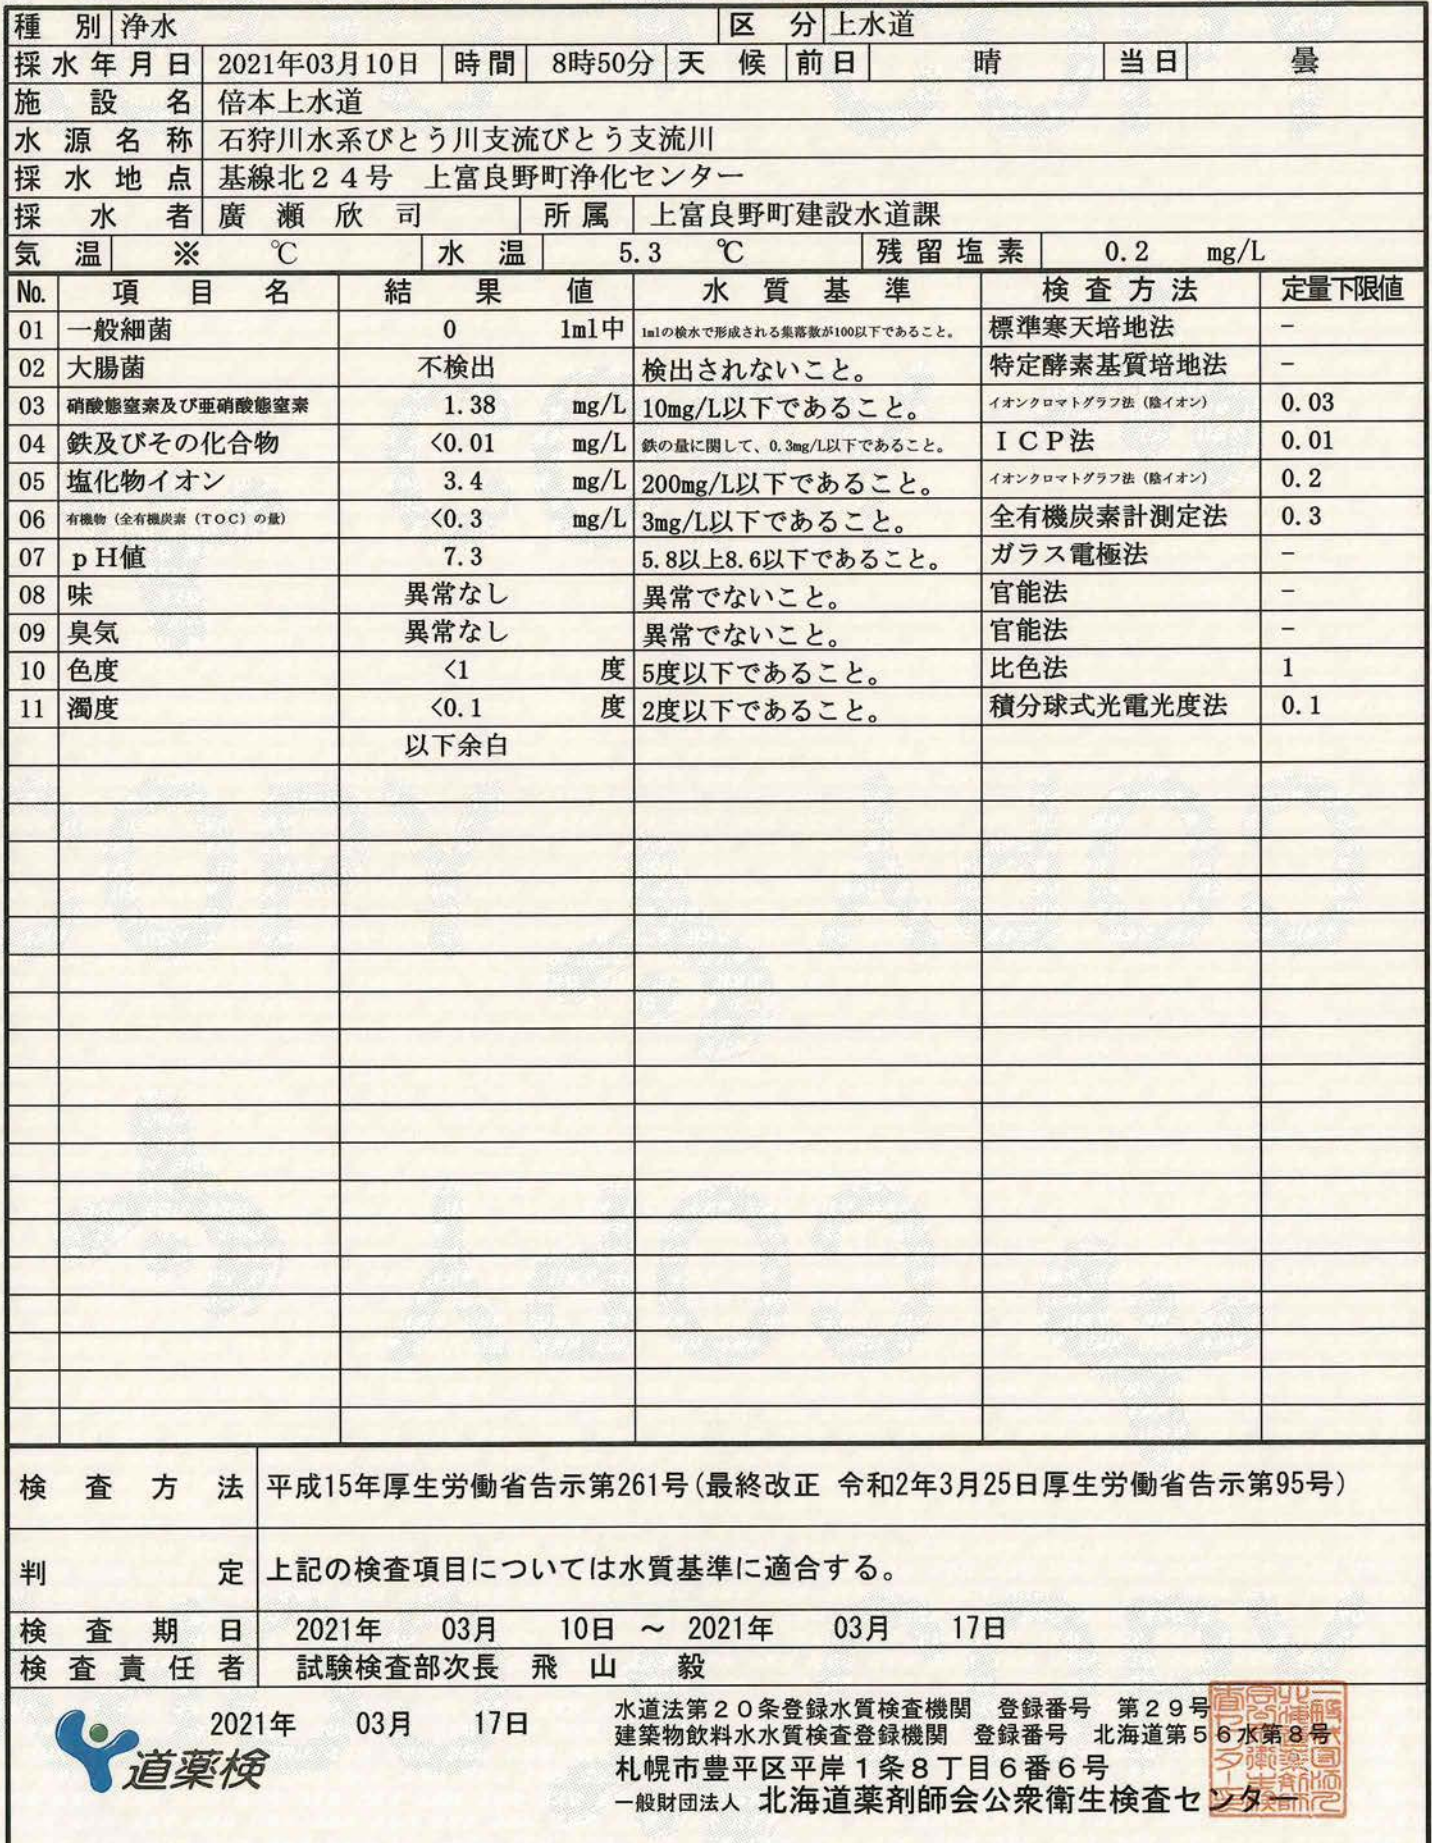 種別 浄水 区分 上水道
採水年月日 2021年03月10日 時間 8時50分 天候 前日 晴 当日 曇
施設名 倍本上水道
水源名称 石狩川水系びとう川支流びとう支流川
採水地点 基線北24号 上富良野町浄化センター
採水者 廣瀬欣司 所属 上富良野町建設水道課
気温 ※ ℃ 水温 5.3 ℃ 残留塩素 0.2 mg/L
No. 項目名 結果値 水質基準 検査方法 定量下限値
01 一般細菌 0 1ml中 1mlの検水で形成される集落数が100以下であること。 標準寒天培地法 −
02 大腸菌 不検出 検出されないこと。 特定酵素基質培地法 −
03 硝酸態窒素及び亜硝酸態窒素 1.38 mg/L 10mg/L以下であること。 イオンクロマトグラフ法（陰イオン） 0.03
04 鉄及びその化合物 <0.01 mg/L 鉄の量に関して、0.3mg/L以下であること。 ICP法 0.01
05 塩化物イオン 3.4 mg/L 200mg/L以下であること。 イオンクロマトグラフ法（陰イオン） 0.2
06 有機物（全有機炭素（TOC）の量） <0.3 mg/L 3mg/L以下であること。 全有機炭素計測定法 0.3
07 pH値 7.3 5.8以上8.6以下であること。 ガラス電極法 −
08 味 異常なし 異常でないこと。 官能法 −
09 臭気 異常なし 異常でないこと。 官能法 −
10 色度 <1 度 5度以下であること。 比色法 1
11 濁度 <0.1 度 2度以下であること。 積分球式光電光度法 0.1
以下余白
検査方法 平成15年厚生労働省告示第261号(最終改正 令和2年3月25日厚生労働省告示第95号)
判定 上記の検査項目については水質基準に適合する。
検査期日 2021年 03月 10日 ～ 2021年 03月 17日
検査責任者 試験検査部次長 飛山 毅
水道法第20条登録水質検査機関 登録番号 第29号
2021年 03月 17日
建築物飲料水水質検査登録機関 登録番号 北海道第56水第8号
道薬検
札幌市豊平区平岸1条8丁目6番6号
一般財団法人 北海道薬剤師会公衆衛生検査センター